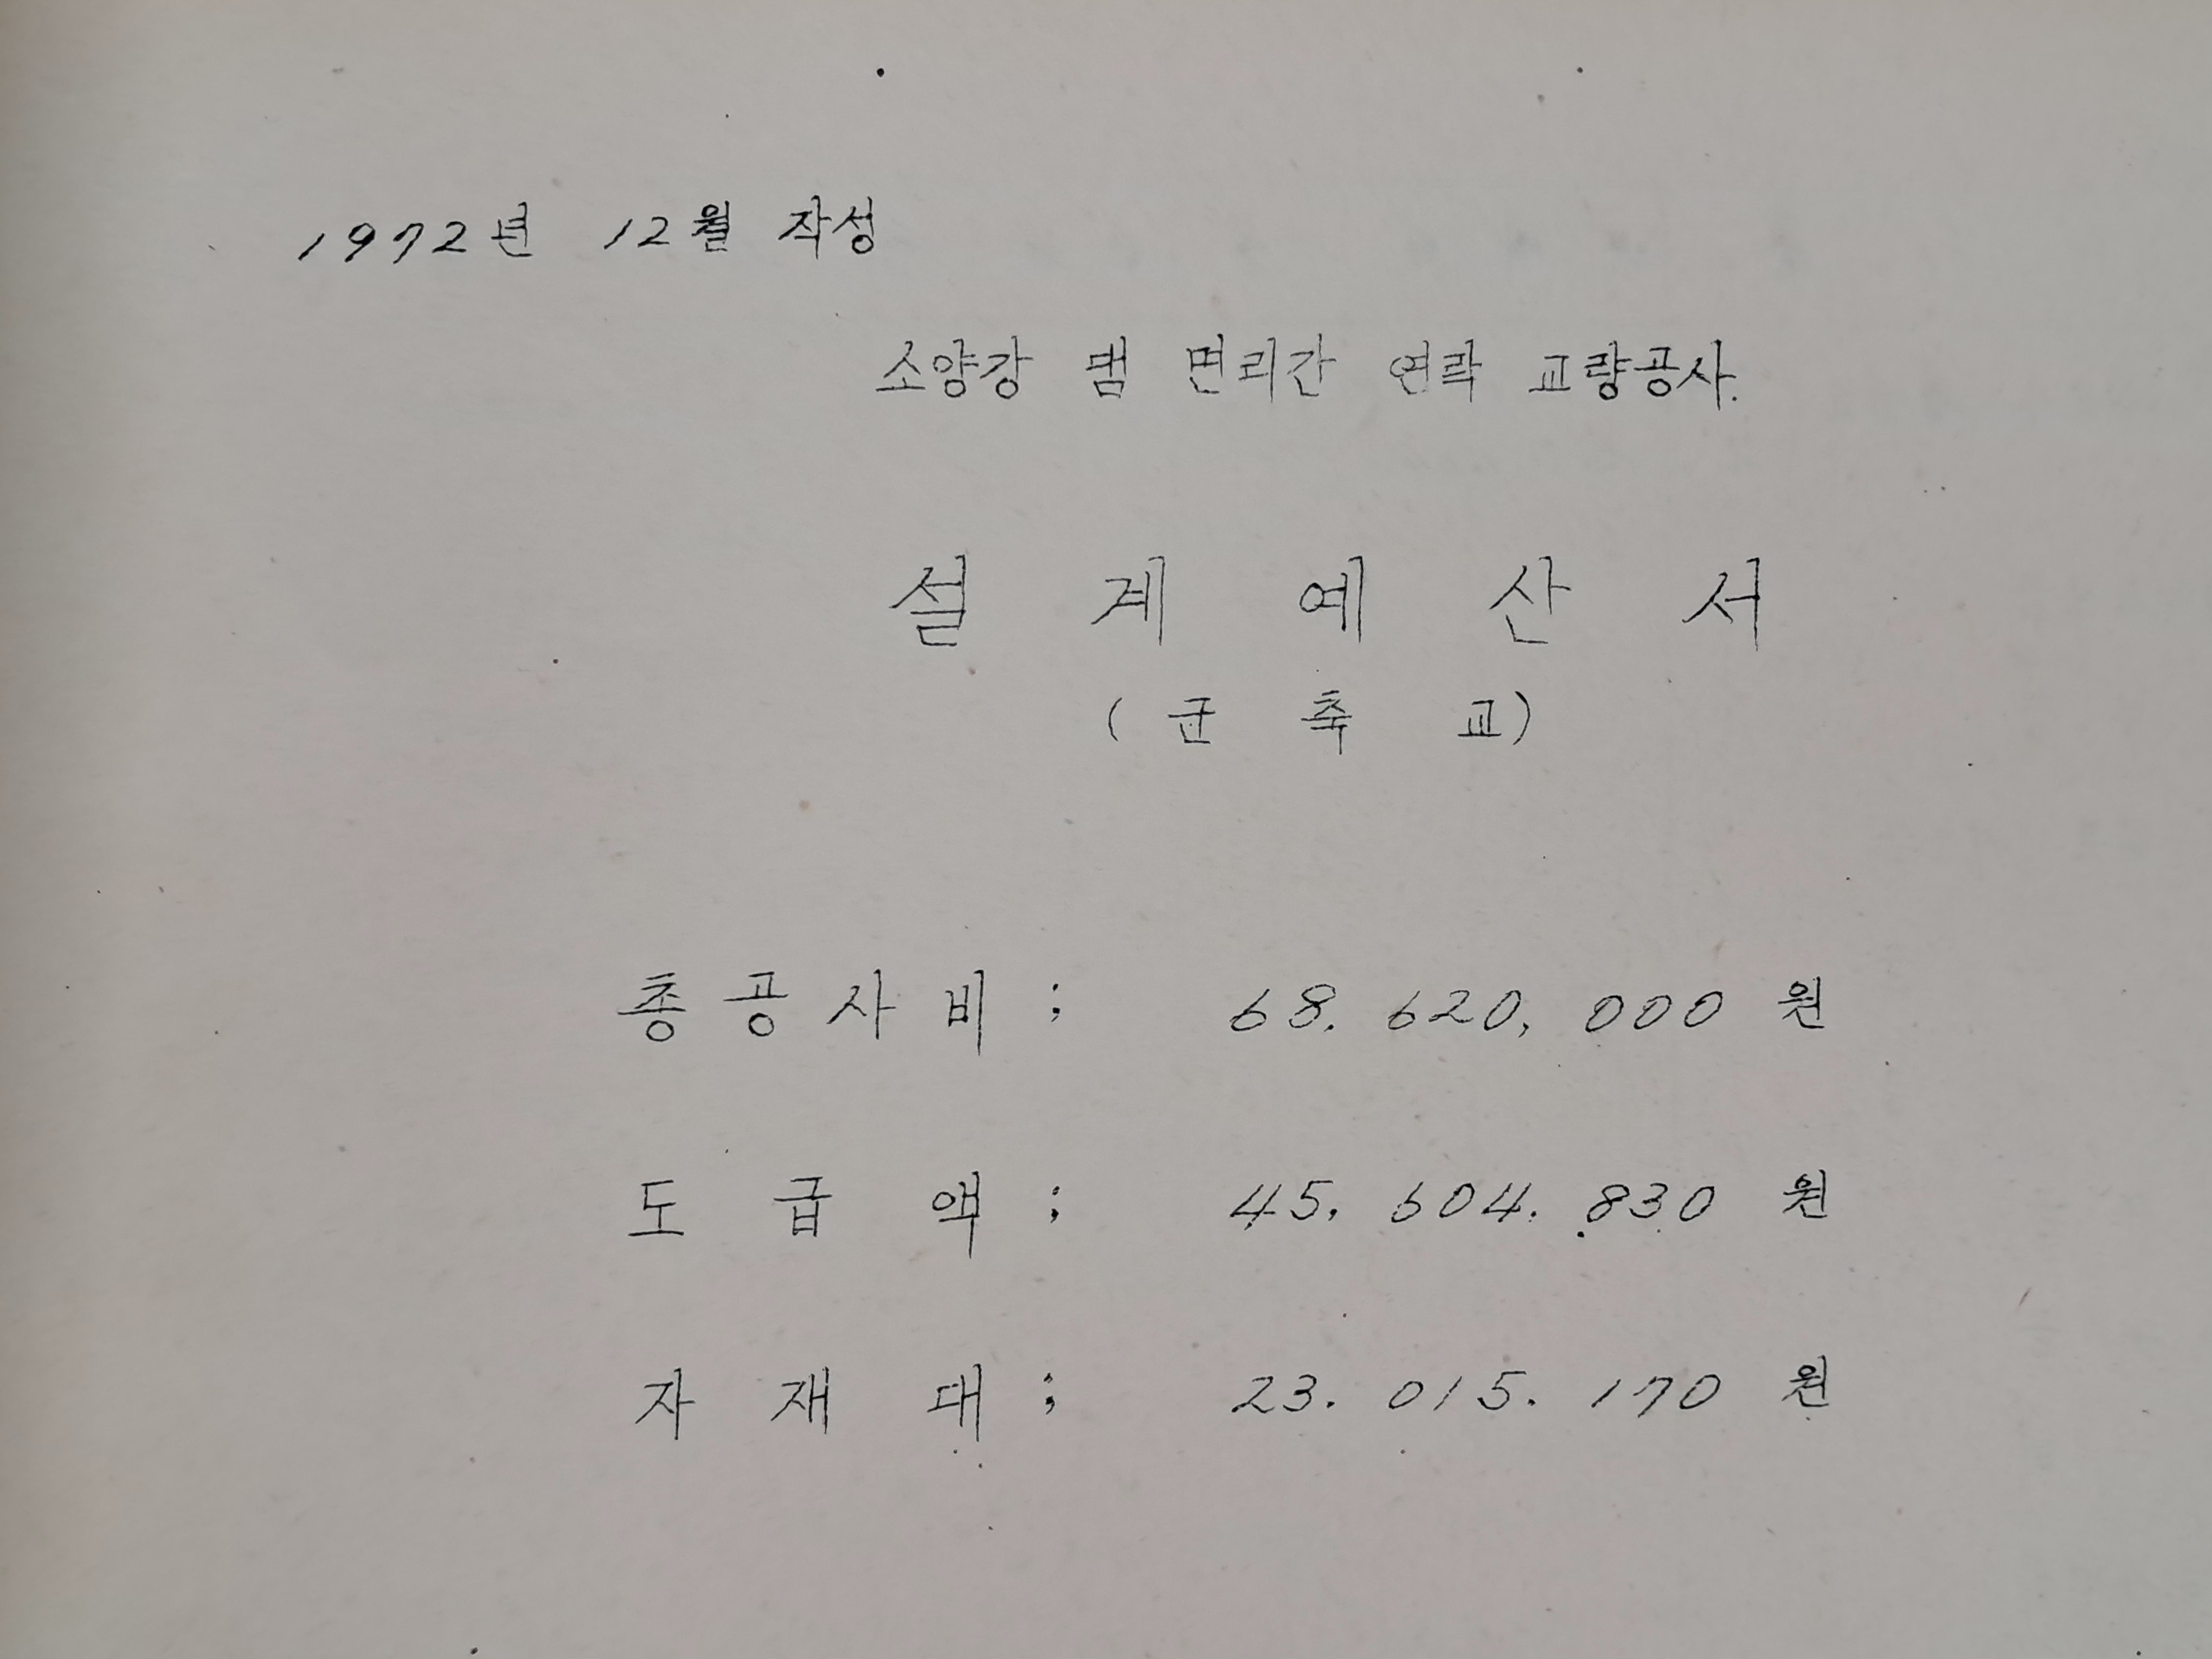 1972년 12월 작성
소양강 댐 면리간 연락 교량공사.
설 계 예 산 서
( 군 축 교 )
총 공 사 비 : 68. 620, 000 원
도 급 액 ; 45. 604. 830 원
자 재 대 ; 23. 015. 170 원